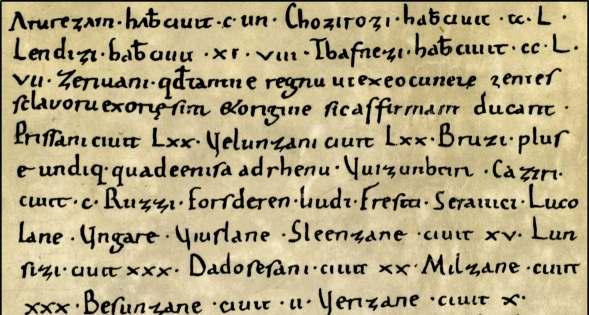 Aturezani · habt ciuit · c·iiii · Chozirozi · habt ciuit · cc · L ·
Lendizi · habt ciuit · xc · viii · Thafnezi · habt ciuit · cc · L ·
vii · Zeriuani · qđ tantū ē regnū ut ex eo cuncte gentes
sclauorū exorte sint & origine sic affirmant ducant ·
Prissani ciuit Lxx · Velunzani ciuit Lxx · Bruzi · plus
ē undiq · quā de enisa ad rhenū · Vuizunbeire · Caziri ·
ciuit · c · Ruzzi · Forsderen · liudi · Fresiti · Serauici · Luco
lane · Vngare · Vuislane · Sleenzane · ciuit xv · Lun
sizi · ciuit xxx · Dadosesani · ciuit xx · Milzane · ciuit
xxx · Besunzane · ciuit · ii · Verizane · ciuit x ·